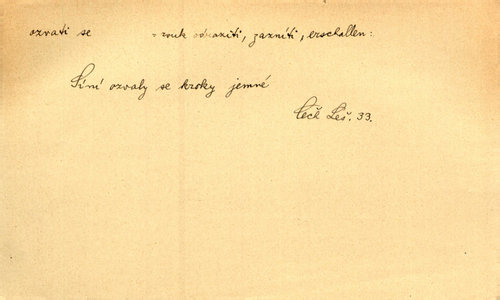 ozvati se zvuk odraziti, zazníti, erschallen:
Síní ozvaly se kroky jemné
Čech Leš. 33.